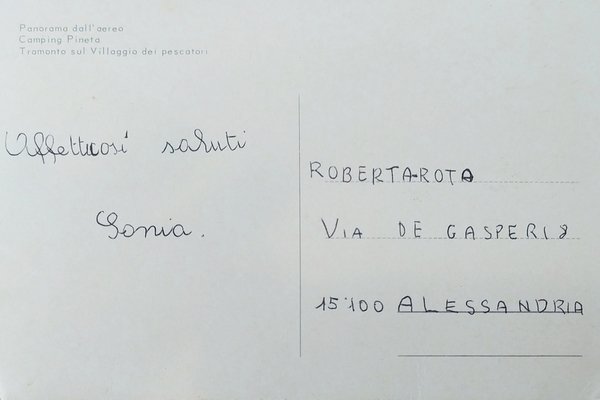 Panorama dall'aereo
Camping Pineta
Tramonto sul Villaggio dei pescatori
Affettuosi saluti
Sonia.
ROBERTA-ROTA
VIA DE GASPERI 8
15100 ALESSANDRIA